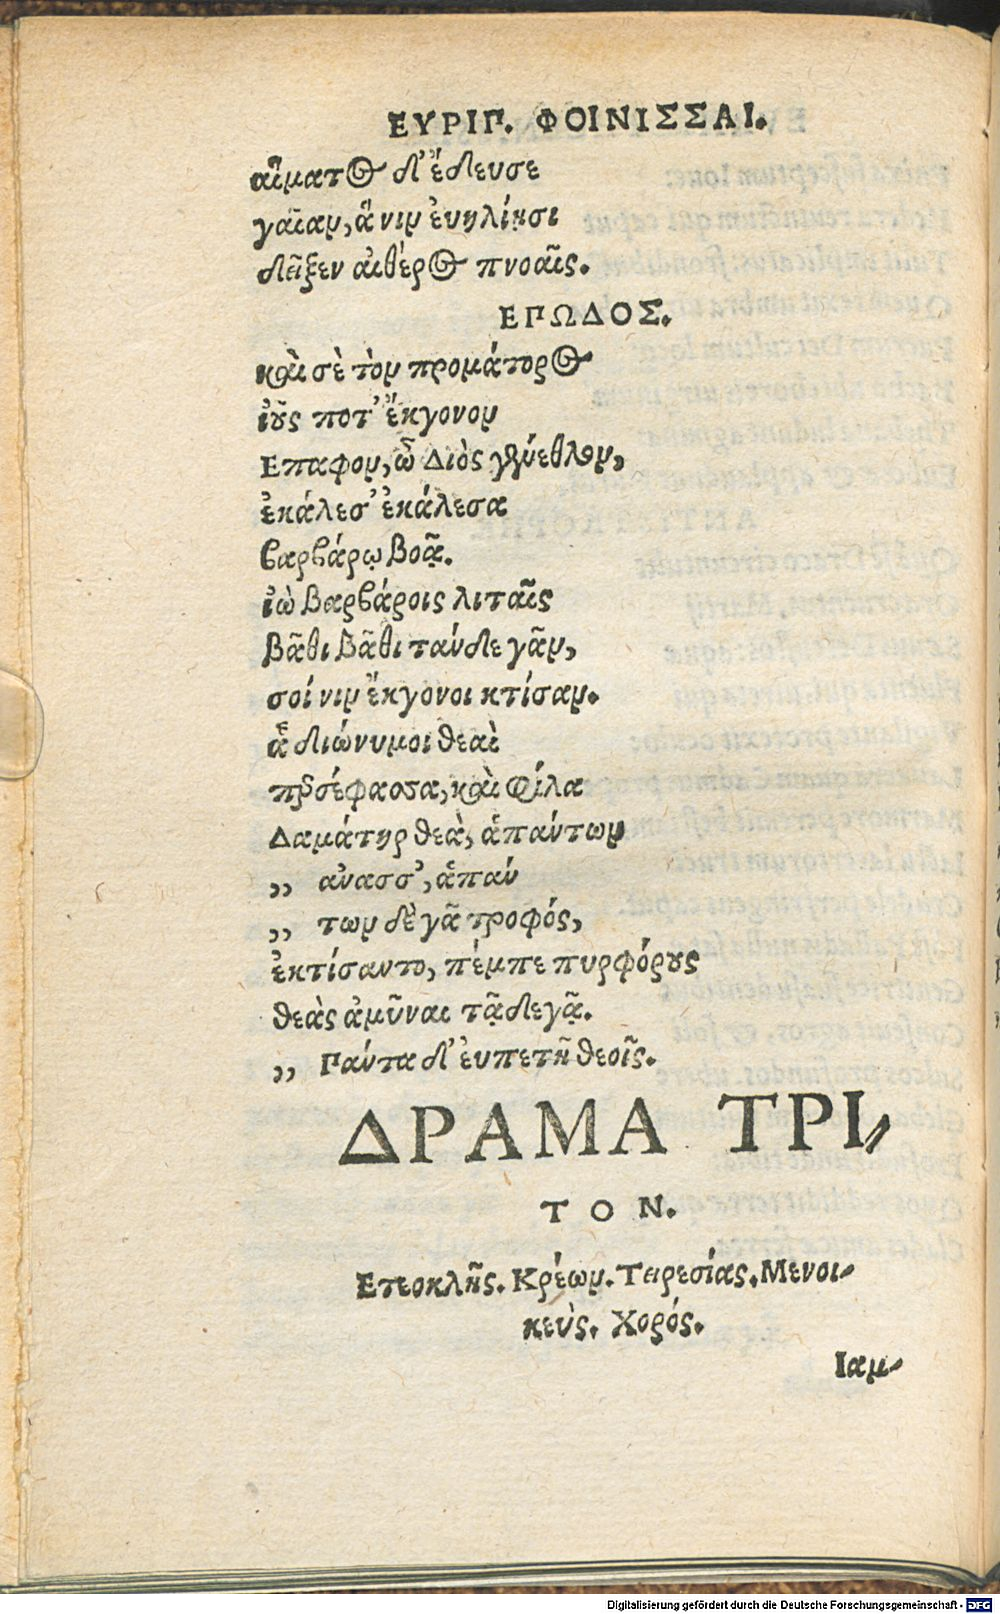 ΕΥΡΙΠ. ΦΟΙΝΙΣΣΑΙ.
αἵματος δ' ἔδευσε
γαῖαν, ἅ νιν εὐηλίοισι
δεῖξεν αἰθέρος πνοαῖς.
ΕΠΩΔΟΣ.
καὶ σὲ τὸν προμάτορος
ἰοῦς ποτ' ἔκγονον
Επαφον, ὦ Διὸς γένεθλον,
ἐκάλεσ' ἐκάλεσα
βαρβάρῳ βοᾷ.
ἰὼ βαρβάροις λιταῖς
βᾶθι βᾶθι τάνδε γᾶν,
σοί νιν ἔκγονοι κτίσαν.
ἃ διώνυμοι θεαὶ
προσέφασσα, καὶ φίλα
Δαμάτηρ θεὰ, ἁπάντων
,, ανασσ', ἁπάν
,, των δὲ γᾶ τροφός,
ἐκτίσαντο, πέμπε πυρφόρους
θεὰς ἀμῦναι τᾷδε γᾷ.
,, Πάντα δ' ευπετῆ θεοῖς.
ΔΡΑΜΑ ΤΡΙ-
ΤΟΝ.
Ετεοκλῆς. Κρέων. Τειρεσίας. Μενοι-
κεύς. Χορός.
Ιαμ-
Digitalisierung gefördert durch die Deutsche Forschungsgemeinschaft - DFG